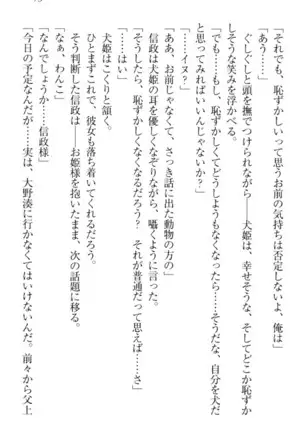 「それでも、恥ずかしいって思うお前の気持ちは否定しないよ、犬姫」
「あう……」
ぐしぐしと頭を撫でつけられながら――犬姫は、幸せそうな、そしてどこか恥ずか
しそうな笑みを浮かべる。
「でも……もし、恥ずかしくてどうしようもなくなったら……そうだな、自分を犬だ
と思ってみればいいんじゃないか？」
「……イヌ？」
「ああ、お前じゃなくて、さっき話に出た動物の方の――」
信政は犬姫の耳を優しくなぞりながら、囁くように言った。
「そうしたら、恥ずかしくなくなるだろう？　それが普通だって思えば……さ」
「……はい」
犬姫はこくりと頷く。
ひとまずこれで、彼女も落ち着いてくれるだろう。
そう判断した信政は――お姫様を抱いたまま、次の話題に移る。
「なぁ、わんこ」
「なんでしょうか……信政様」
「今日の予定なんだが……実は、大野湊に行かなくてはいけないんだ。前々から父上